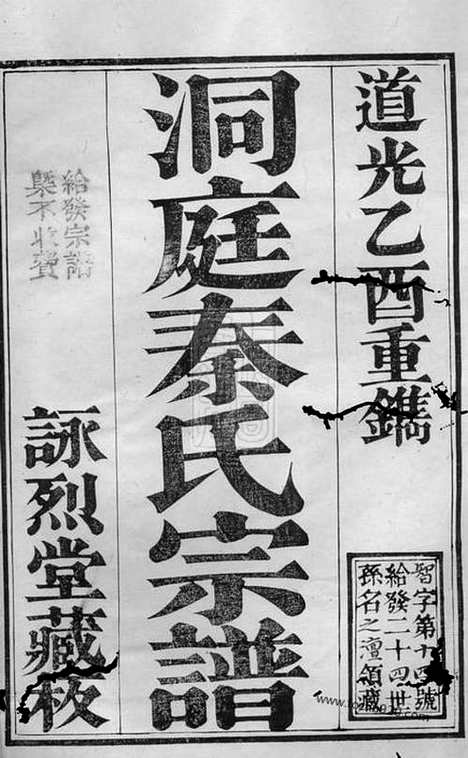 道光乙酉重鐫
智字第九四號
給發二十四世
孫名之澶領藏
洞庭秦氏宗譜
給發宗譜
槩不收費
詠烈堂藏板